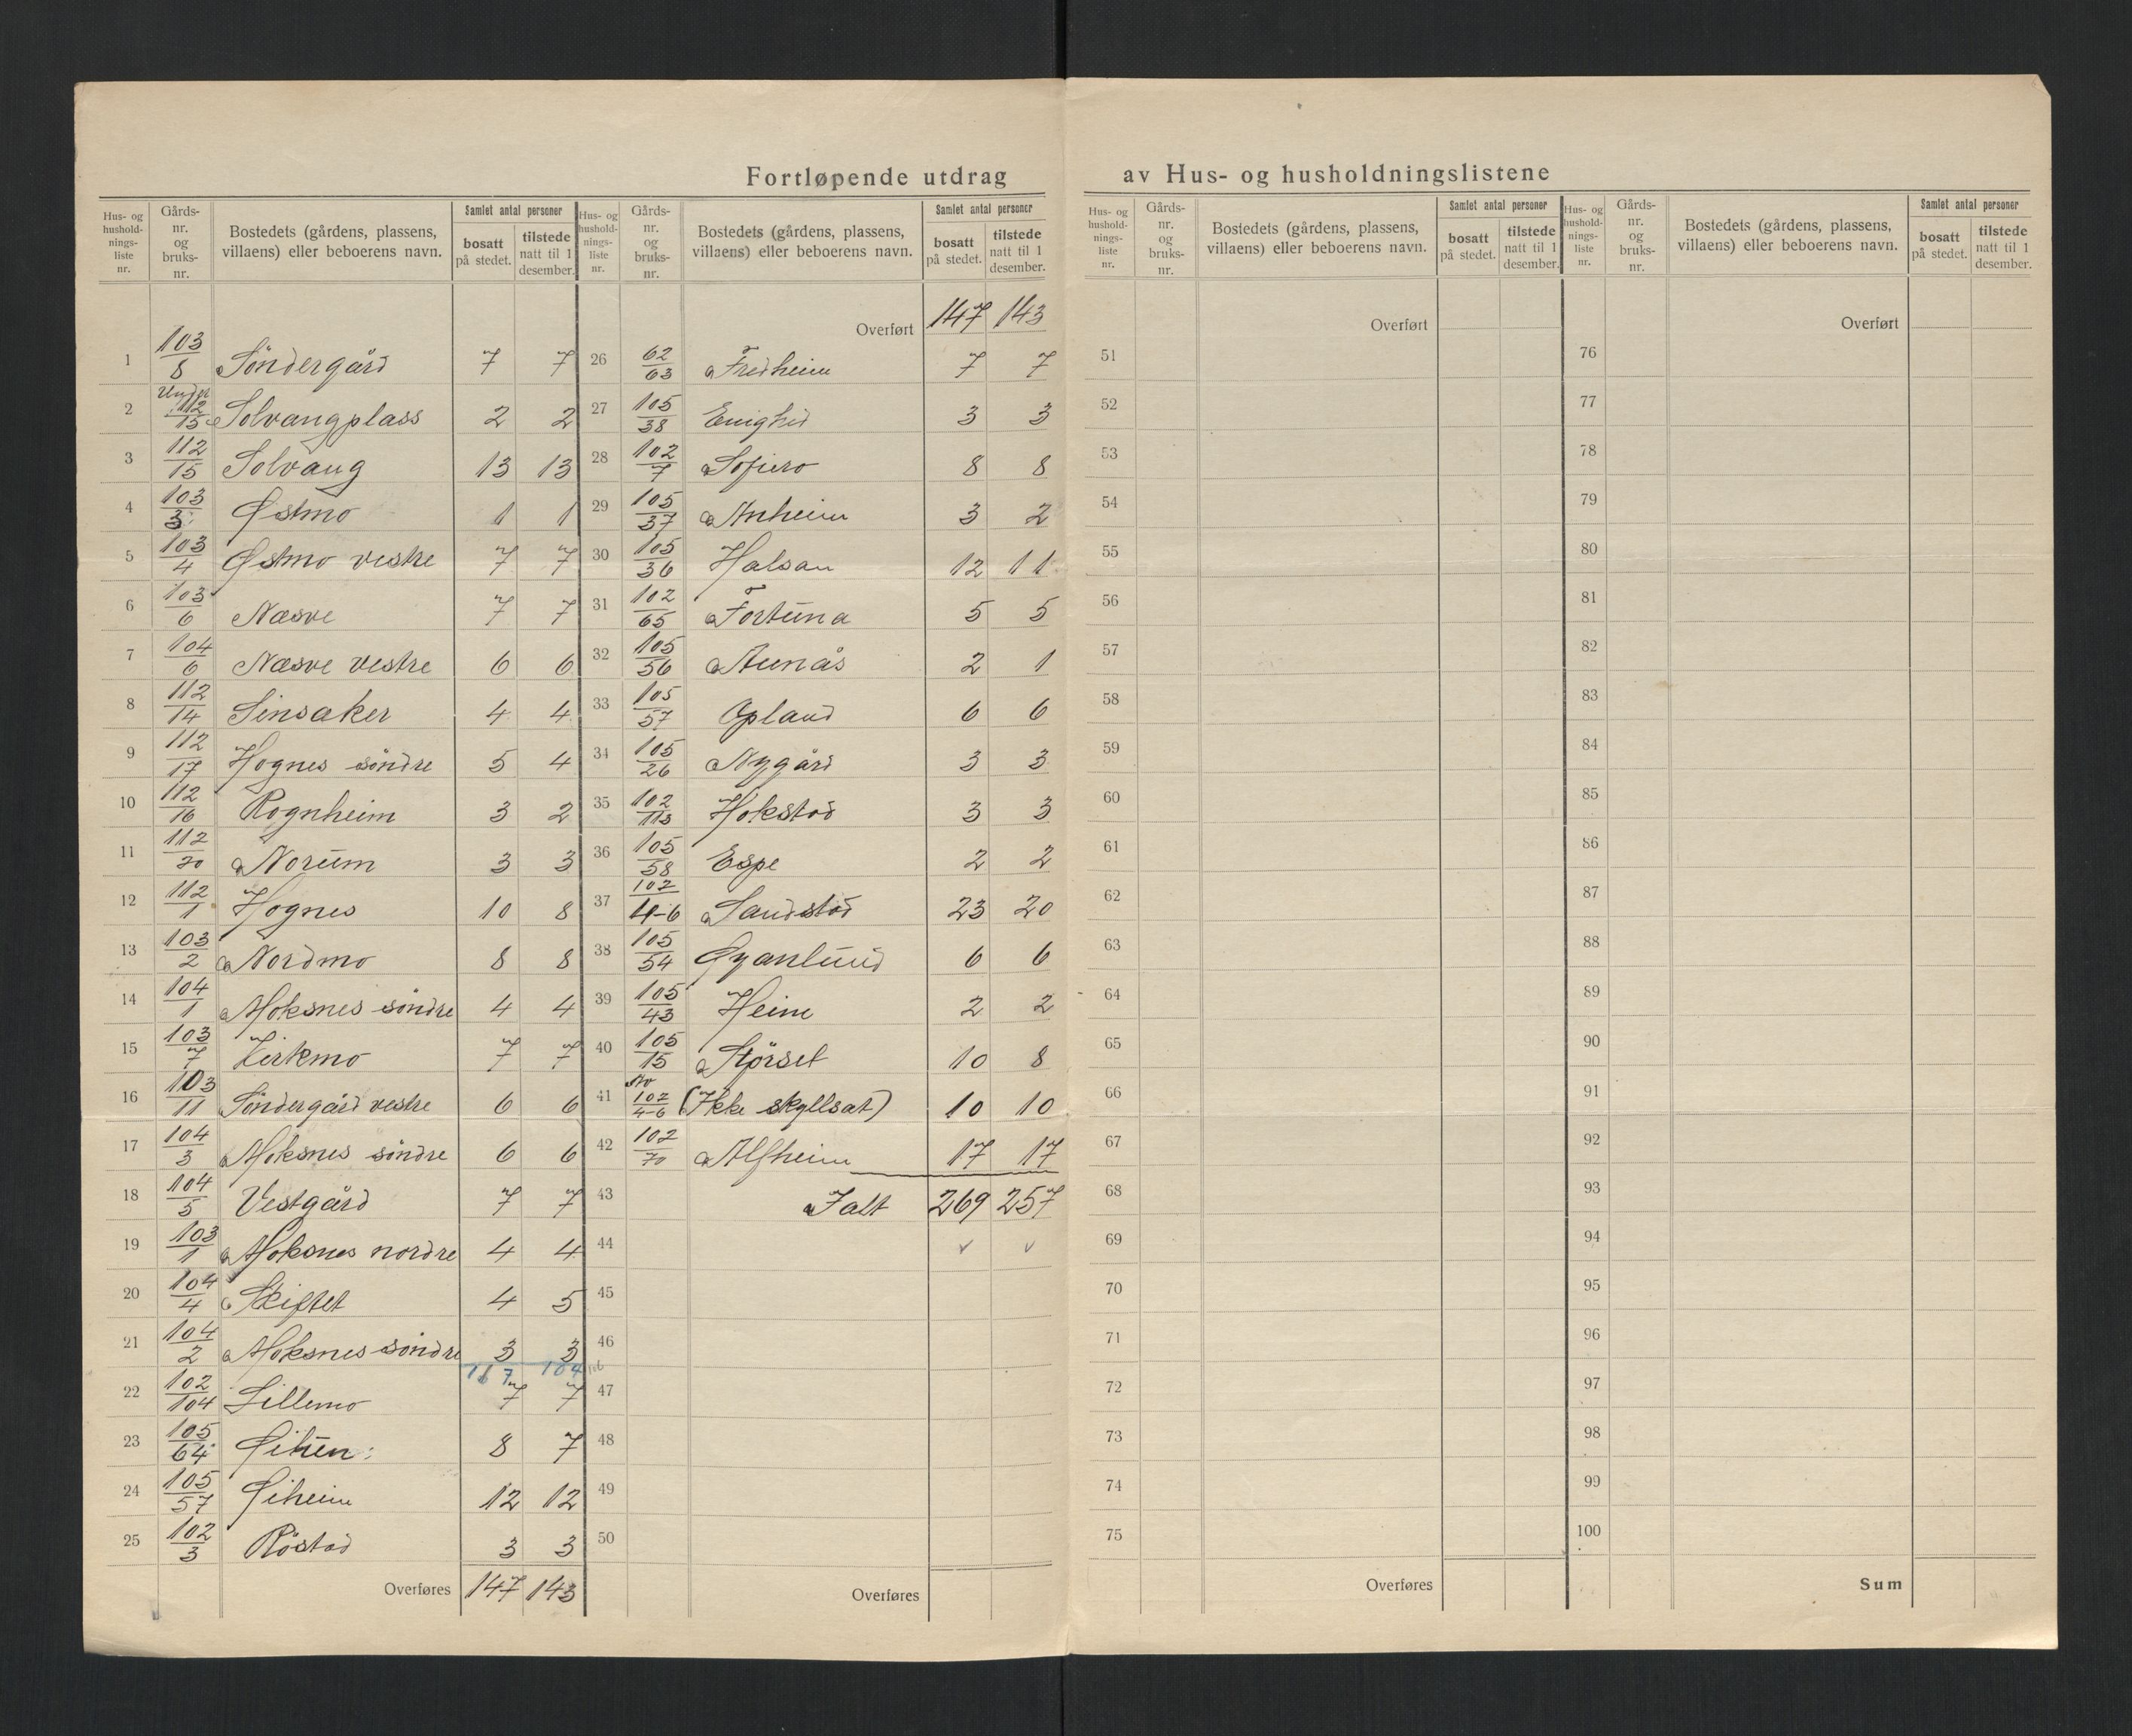 Fortløpende utdrag av Hus- og husholdningslistene
Hus- og hushold-nings-liste nr. Gårds-nr. og bruks-nr. Bostedets (gårdens, plassens, villaens) eller beboerens navn. Samlet antal personer bosatt på stedet. tilstede natt til 1 desember.
1 103/8 Söndergård 7 7
2 112/15 Solvangplass 2 2
3 112/15 Solvang 13 13
4 103/3 Østmo 1 1
5 103/4 Østmo vestre 7 7
6 103/6 Næsve 7 7
7 104/6 Næsve vestre 6 6
8 112/14 Sinsaker 4 4
9 112/17 Hognes söndre 5 4
10 112/16 Rognheim 3 2
11 112/20 Norum 3 3
12 112/1 Hognes 10 8
13 103/2 Nordmo 8 8
14 104/1 Moksnes söndre 4 4
15 103/7 Kirkmo 7 7
16 103/11 Söndergård vestre 6 6
17 104/3 Moksnes söndre 6 6
18 104/5 Vestgård 7 7
19 103/1 Moksnes nordre 4 4
20 104/4 Skiftet 4 5
21 104/2 Moksnes söndre 3 3
117 104 106
22 102/104 Lillemo 7 7
23 105/64 8 7
24 105/57 Øiheim 12 12
25 102/3 Röstad 3 3
Overføres 147 143
Hus- og hushold-nings-liste nr. Gårds-nr. og bruks-nr. Bostedets (gårdens, plassens, villaens) eller beboerens navn. Samlet antal personer bosatt på stedet. tilstede natt til 1 desember.
Overført 147 143
26 62/63 Fredheim 7 7
27 105/38 Enighed 3 3
28 102/7 Sofiero 8 8
29 105/37 Anheim 3 2
30 105/36 Halsan 12 11
31 102/65 Fortuna 5 5
32 105/56 Aunås 2 1
33 105/57 Opland 6 6
34 105/26 Nygård 3 3
35 102/113 Hokstad 3 3
36 105/58 Espe 2 2
37 102/4-6 Sandstad 23 20
38 105/54 Øyanlund 6 6
39 105/43 Heim 2 2
40 105/15 Størset 10 8
41 Av 102/4-6 (Ikke skyllsat) 10 10
42 102/70 Alfheim 17 17
43 Ialt 269 257
44
45
46
47
48
49
50
Overføres
Hus- og hushold-nings-liste nr. Gårds-nr. og bruks-nr. Bostedets (gårdens, plassens, villaens) eller beboerens navn. Samlet antal personer bosatt på stedet. tilstede natt til 1 desember.
Overført
51
52
53
54
55
56
57
58
59
60
61
62
63
64
65
66
67
68
69
70
71
72
73
74
75
Overføres
Hus- og hushold-nings-liste nr. Gårds-nr. og bruks-nr. Bostedets (gårdens, plassens, villaens) eller beboerens navn. Samlet antal personer bosatt på stedet. tilstede natt til 1 desember.
Overført
76
77
78
79
80
81
82
83
84
85
86
87
88
89
90
91
92
93
94
95
96
97
98
99
100
Sum